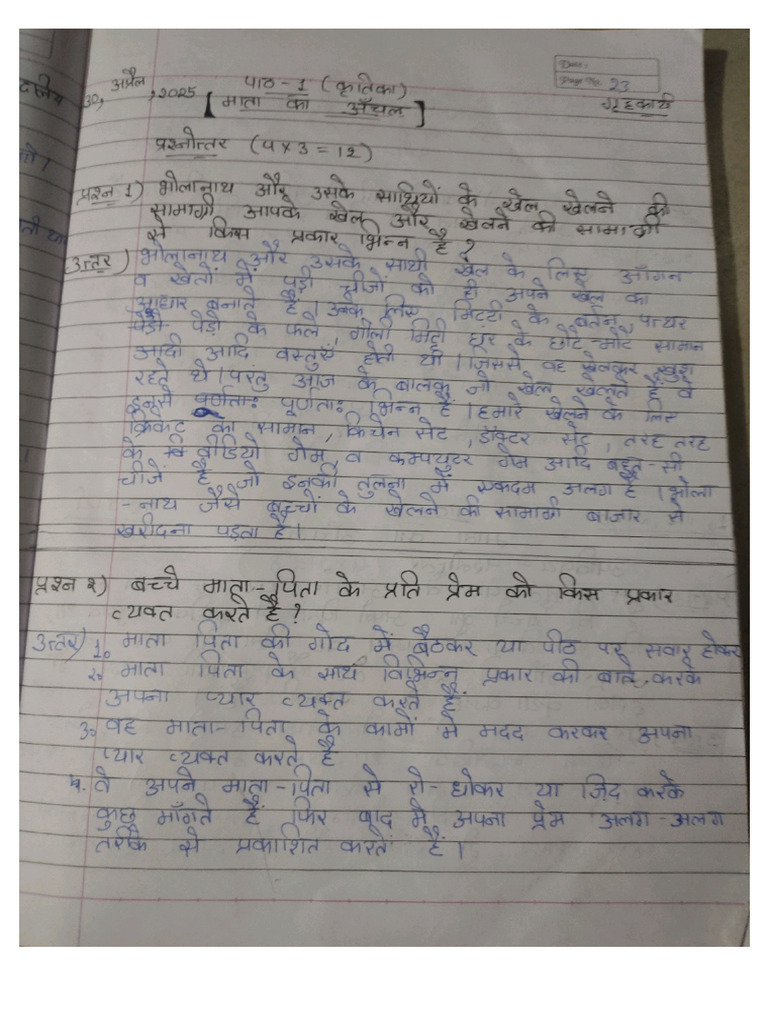 Date:
Page No. 23
पाठ - 1 (कृतिका)
30, अप्रैल, 2025 [माता का आँचल] गृहकार्य
प्रश्नोत्तर (4 x 3 = 12)
प्रश्न 1) भोलानाथ और उसके साथियों के खेल खेलने की
सामाग्री आपके खेल और खेलने की सामाग्री
से किस प्रकार भिन्न है?
उत्तर) भोलानाथ और उसके साथी खेल के लिए आँगन
व खेतों में पड़ी चीजों को ही अपने खेल का
आधार बनाते हैं। उनके लिए मिट्टी के बर्तन, पत्थर
पेड़ो के फले, गीली मिट्टी, घर के छोटे-मोटे सामान
आदी आदि वस्तुएँ होती थी। जिससे वह खेलकर खुश
रहते थे। परंतु आज के बालक जो खेल खेलते है वे
इनसे पूर्णताः भिन्न है। हमारे खेलने के लिए
क्रिकेट का सामान, किचेन सेट, डॉक्टर सेट, तरह तरह
के वीडियो गेम, व कम्पयुटर गेम आदि बहुत-सी
चीजें है जो इनकी तुलना में एकदम अलग है। भोला
-नाथ जैसे बच्चों के खेलने की सामाग्री बाजार से
खरीदना पड़ता है।
प्रश्न २) बच्चे माता-पिता के प्रति प्रेम को किस प्रकार
व्यक्त करते है?
उत्तर) 1. माता पिता की गोद में बैठकर या पीठ पर सवार होकर
२. माता पिता के साथ विभिन्न प्रकार की बाते करके
अपना प्यार व्यक्त करते हैं
3. वह माता-पिता के कामों में मदद करकर अपना
प्यार व्यक्त करते हैं
4. वे अपने माता-पिता से रो-धोकर या ज़िद करके
कुछ माँगते हैं फिर बाद में अपना प्रेम अलग-अलग
तरीके से प्रकाशित करते हैं।